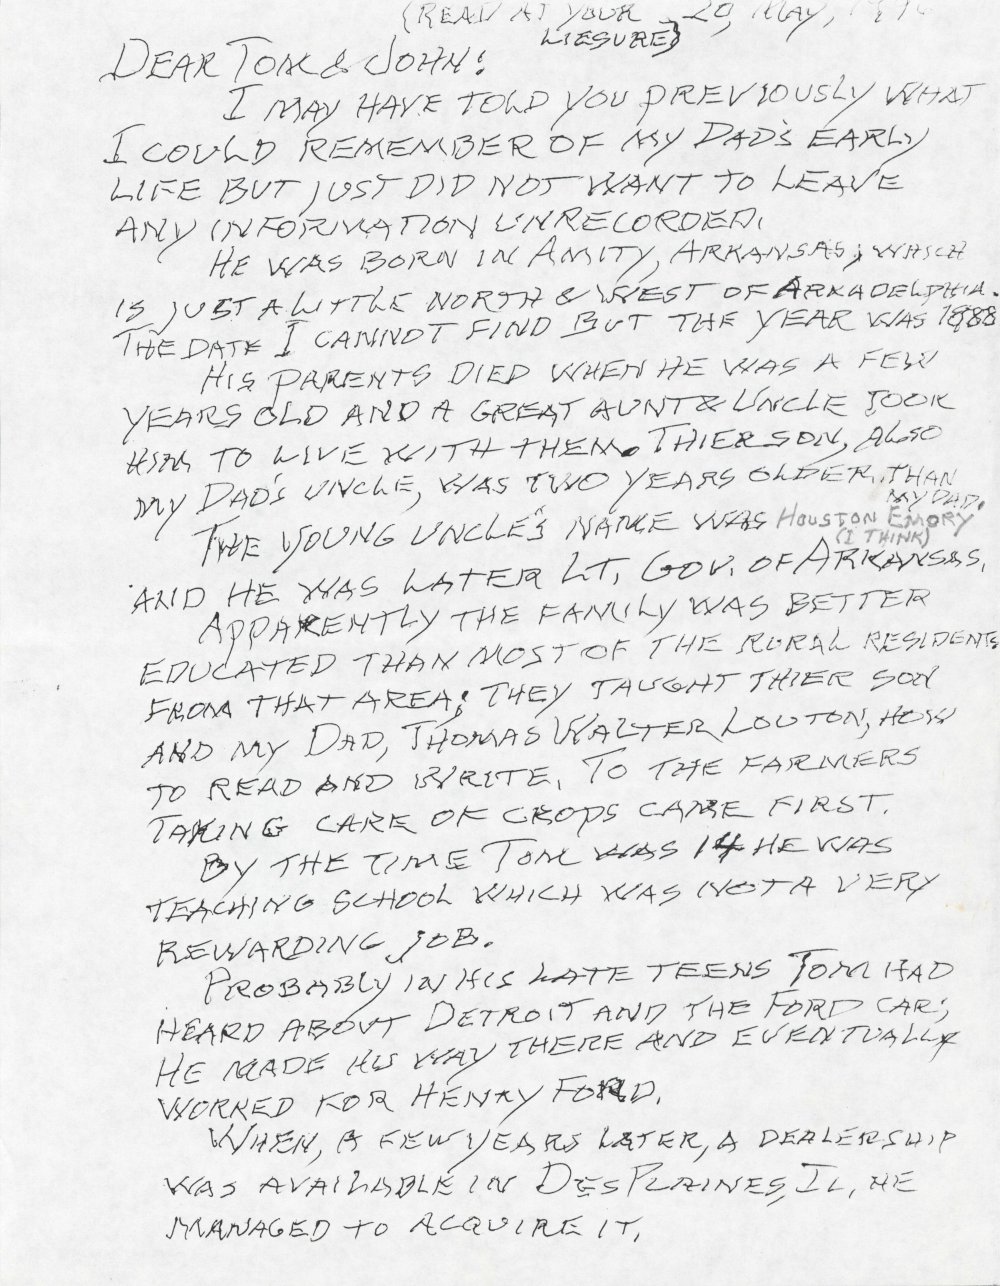 (READ AT YOUR 20, MAY,
LIESURE)
DEAR TOM & JOHN:
I MAY HAVE TOLD YOU PREVIOUSLY WHAT
I COULD REMEMBER OF MY DAD'S EARLY
LIFE BUT JUST DID NOT WANT TO LEAVE
ANY INFORMATION UNRECORDED.
HE WAS BORN IN AMITY, ARKANSAS; WHICH
IS JUST A LITTLE NORTH & WEST OF ARKADELPHIA.
THE DATE I CANNOT FIND BUT THE YEAR WAS 1888
HIS PARENTS DIED WHEN HE WAS A FEW
YEARS OLD AND A GREAT AUNT & UNCLE TOOK
HIM TO LIVE WITH THEM. THIER SON, ALSO
MY DAD'S UNCLE, WAS TWO YEARS OLDER THAN
MY DAD.
THE YOUNG UNCLE'S NAME WAS HOUSTON EMORY
(I THINK)
AND HE WAS LATER LT. GOV. OF ARKANSAS.
APPARENTLY THE FAMILY WAS BETTER
EDUCATED THAN MOST OF THE RURAL RESIDENTS
FROM THAT AREA; THEY TAUGHT THIER SON
AND MY DAD, THOMAS WALTER LOUTON, HOW
TO READ AND WRITE. TO THE FARMERS
TAKING CARE OF CROPS CAME FIRST.
BY THE TIME TOM WAS 14 HE WAS
TEACHING SCHOOL WHICH WAS NOT A VERY
REWARDING JOB.
PROBABLY IN HIS LATE TEENS TOM HAD
HEARD ABOUT DETROIT AND THE FORD CAR;
HE MADE HIS WAY THERE AND EVENTUALLY
WORKED FOR HENRY FORD.
WHEN, A FEW YEARS LATER, A DEALERSHIP
WAS AVAILABLE IN DES PLAINES, IL, HE
MANAGED TO ACQUIRE IT.